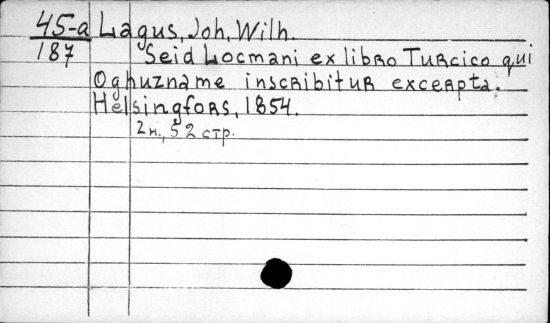 45-a Lagus, Joh, Wilh.
187 Seid Locmani ex libro Turcico qui
Oghuzname inscribitur excerpta.
Helsingfors, 1854.
2 н., 52 стр.